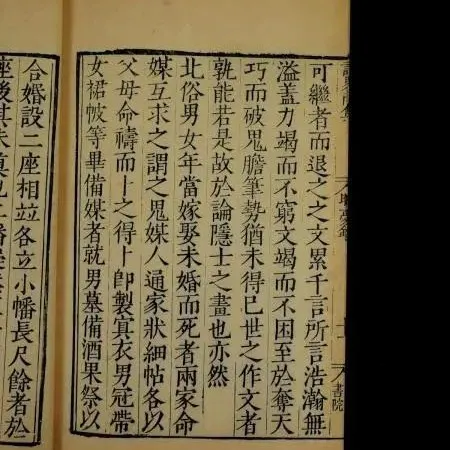 書院
可繼者而退之之文累千言所言浩瀚無
溢蓋力竭而不窮文竭而不困至於奪天
巧而破鬼膽筆勢猶未得已世之作文者
孰能若是故於論隱士之畫也亦然
北俗男女年當嫁娶未婚而死者兩家命
媒互求之謂之鬼媒人通家狀細帖各以
父母命禱而卜之得卜卽製冥衣男冠帶
女裙帔等畢備媒者就男墓備酒果祭以
合婚設二座相竝各立小幡長尺餘者於
座後其未奠也二幡